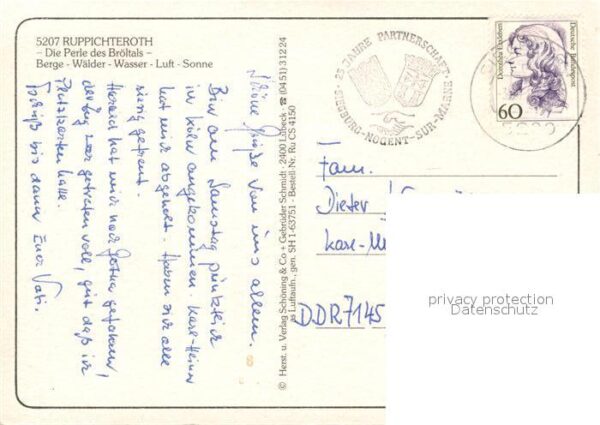 5207 RUPPICHTEROTH
– Die Perle des Bröltals –
Berge - Wälder - Wasser - Luft - Sonne
Schöne Grüße von uns allen.
Bin am Samstag pünktlich
in Köln angekommen. Karl-Heinz
hat mich abgeholt. Haben sich alle
riesig gefreut.
hat mich nach Gotha gefahren,
der Zug war getreten voll, gut daß ich
Platzkarten hatte.
Tschüß bis dann Euer Vati.
© Herst. u. Verlag Schöning & Co + Gebrüder Schmidt · 2400 Lübeck · ☎ (04 51) 3 12 24
Luftaufn., gen. SH 1-63751 · Bestell-Nr. Ru CS 4150
25 JAHRE PARTNERSCHAFT
SIEGBURG - NOGENT-SUR-MARNE
Dorothea Erxleben
Deutsche Bundespost
60
Fam.
Dieter
Karl-
DDR 7145
privacy protection
Datenschutz